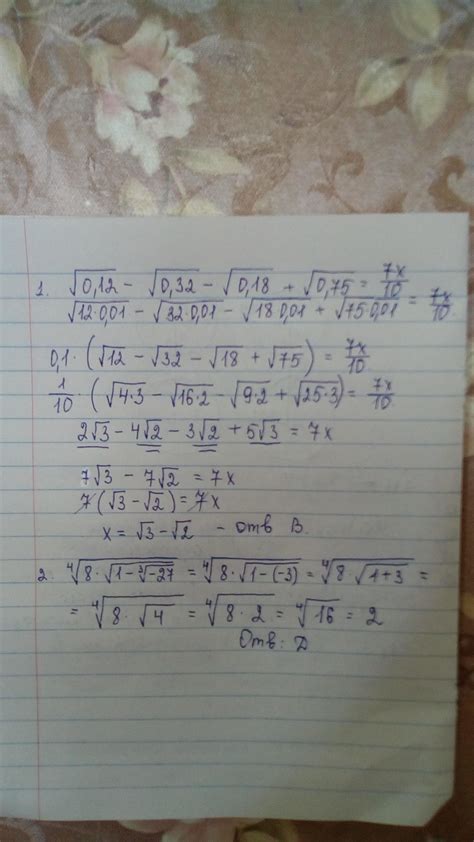 1. √0,12 − √0,32 − √0,18 + √0,75 = 7x/10
√12·0,01 − √32·0,01 − √18·0,01 + √75·0,01 = 7x/10
0,1·(√12 − √32 − √18 + √75) = 7x/10
1/10·(√4·3 − √16·2 − √9·2 + √25·3) = 7x/10
2√3 − 4√2 − 3√2 + 5√3 = 7x
7√3 − 7√2 = 7x
7(√3 − √2) = 7x
x = √3 − √2 – отв В.
2. ∜8·√1−∛−27 = ∜8·√1−(−3) = ∜8·√1+3 =
= ∜8·√4 = ∜8·2 = ∜16 = 2
Отв: Д